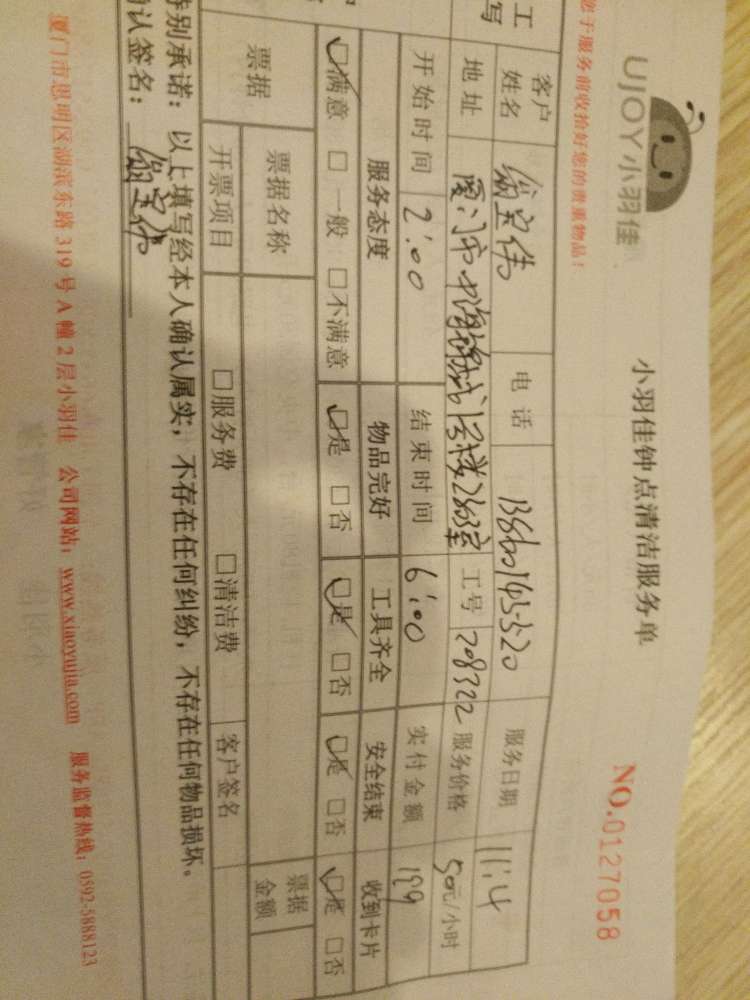 UJOY小羽佳
小羽佳钟点清洁服务单
NO.0127058
您于服务前收拾好您的贵重物品!
工
写
客户姓名
电话
服务日期 11:4
地址 厦门市中海锦城 号楼2303室 工号 208322 服务价格 50元/小时
开始时间 2:00 结束时间 6:00 实付金额 199
服务态度 物品完好 工具齐全 安全结束 收到卡片
☑满意 □一般 □不满意 ☑是 □否 ☑是 □否 ☑是 □否 ☑是 □否
票据 票据名称 票据金额
开票项目 □服务费 □清洁费 客户签名
特别承诺：以上填写经本人确认属实，不存在任何纠纷，不存在任何物品损坏。
确认签名：
厦门市思明区湖滨东路319号A幢2层小羽佳 公司网站：www.xiaoyujia.com 服务监督热线：0592-5888123